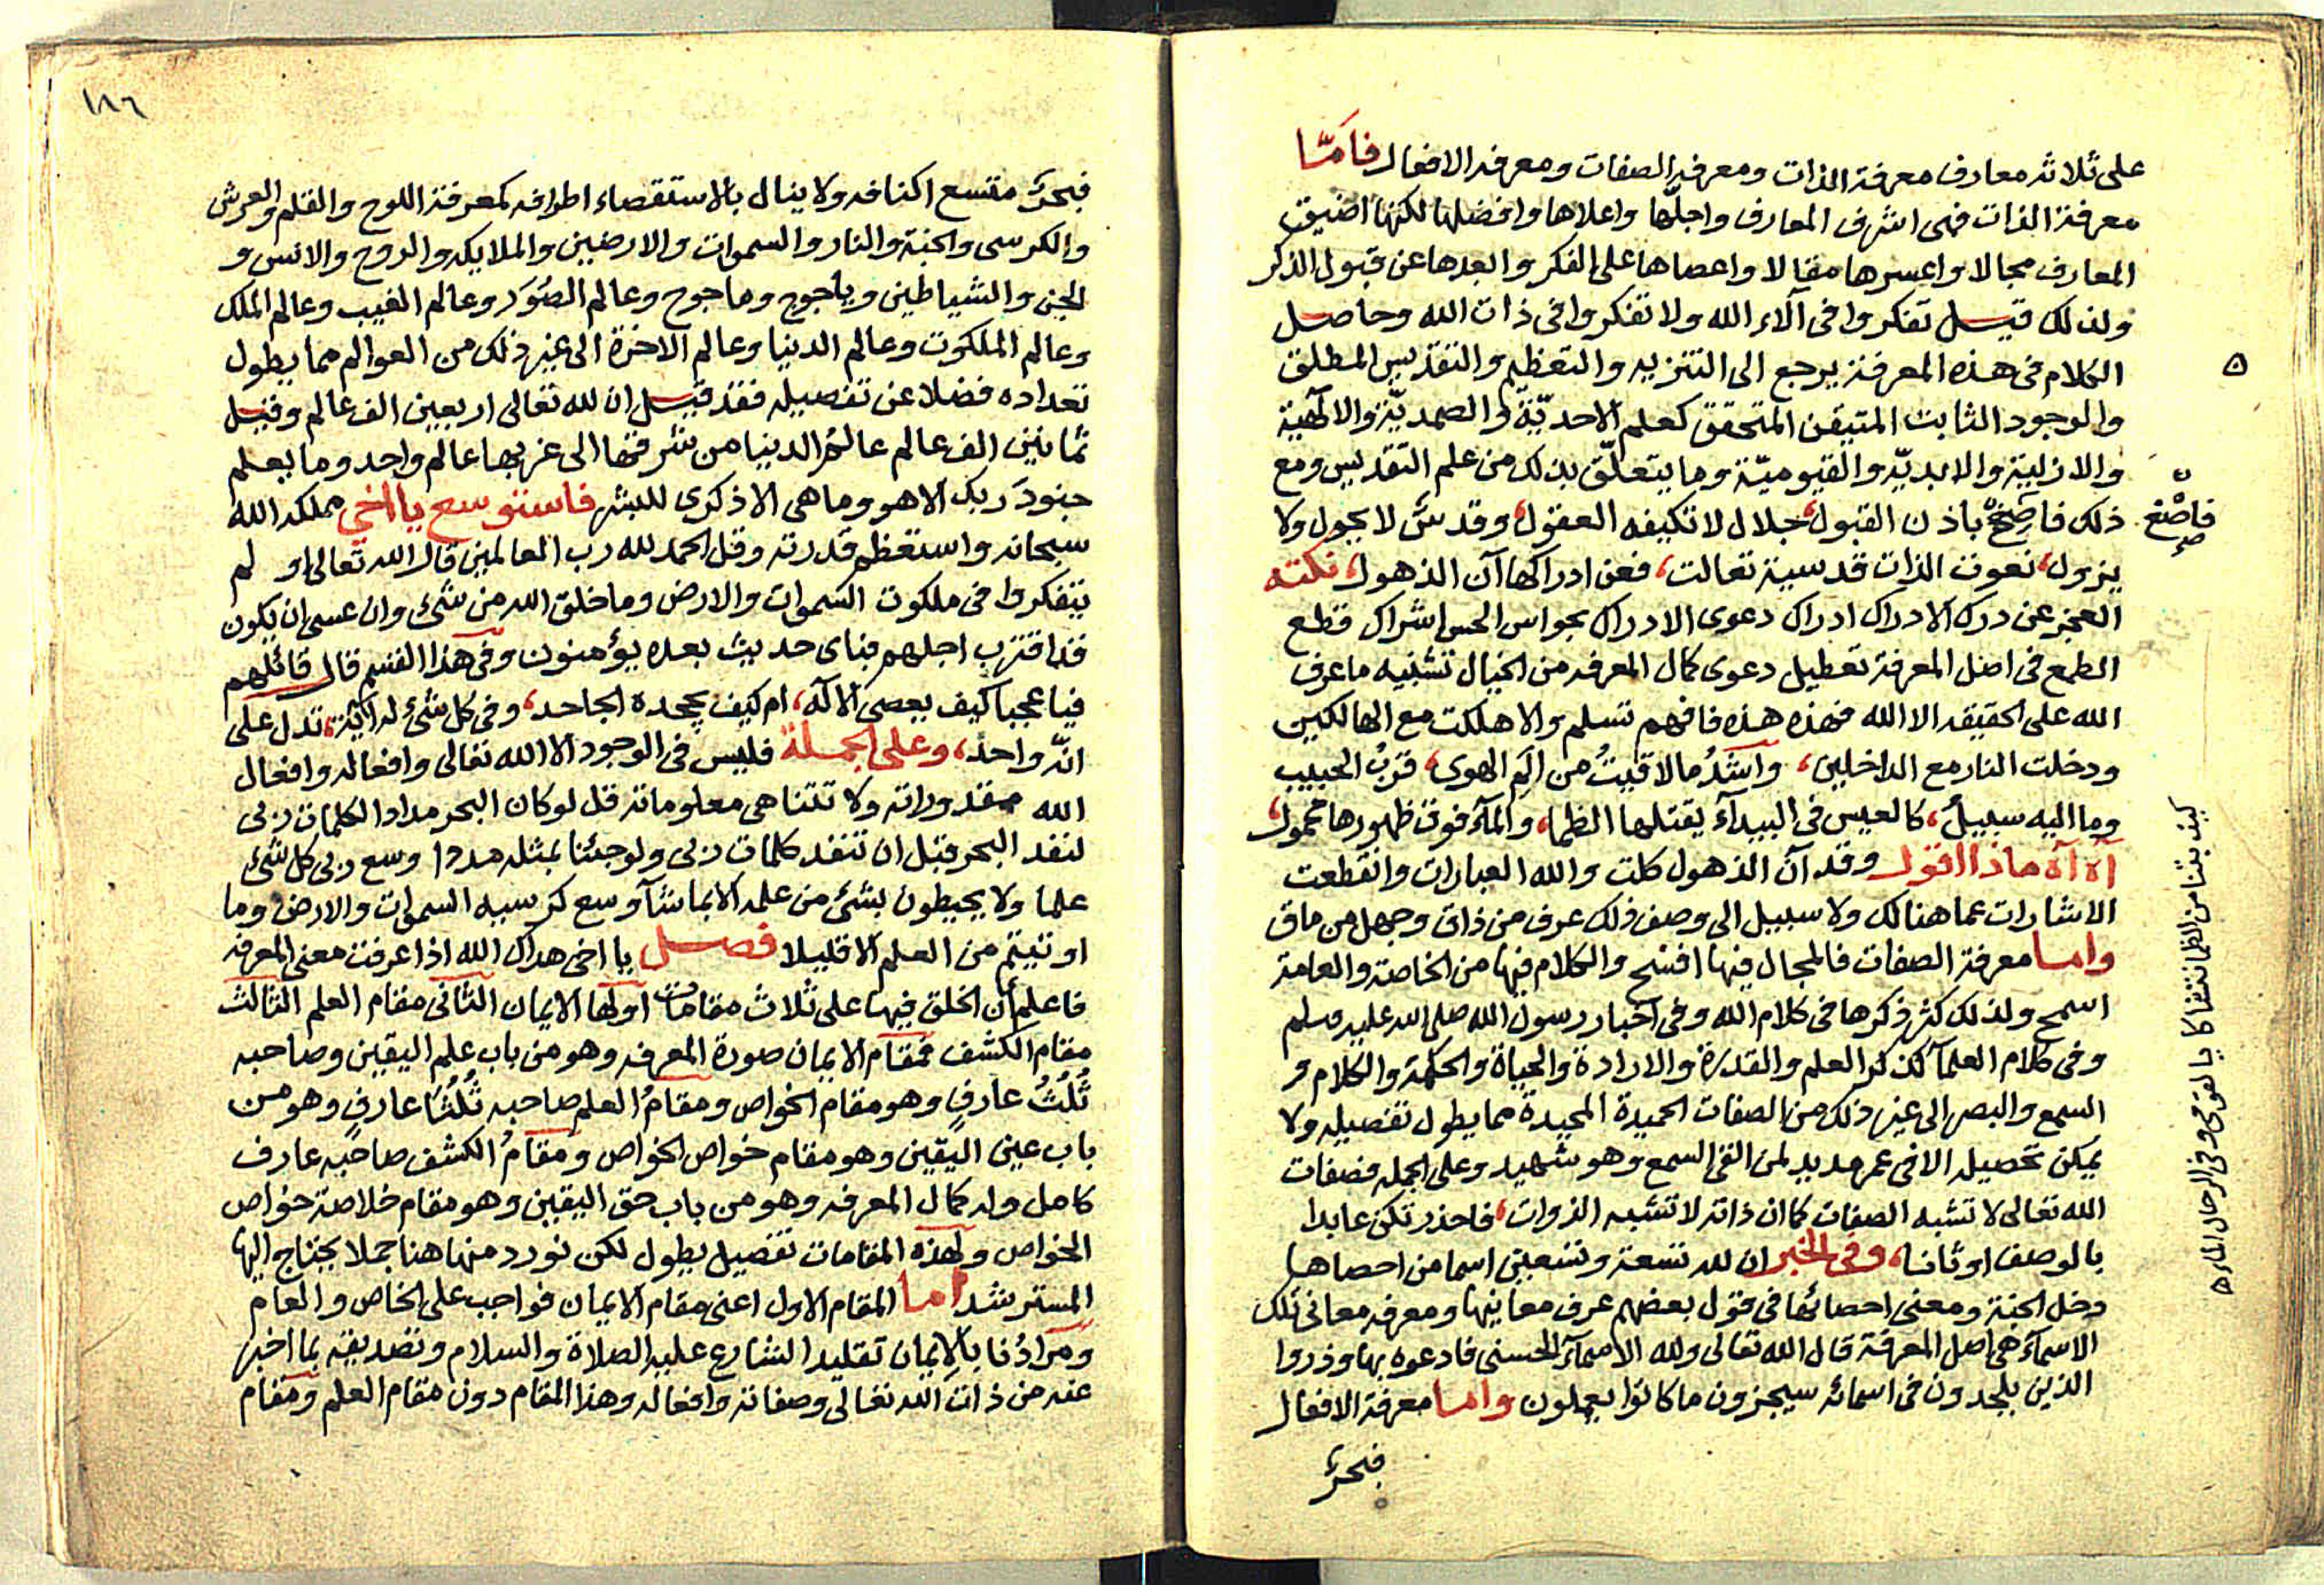 على ثلاثه معارف معرفة الذات ومعرفه الصفات ومعرفه الافعال فامّا
معرفة الذات فهى اشرف المعارف واجلّها واعلاها وافضلها لكنها اضيق
المعارف مجالا واعسرها مقالا واعصاها على الفكر وابعدها عن قبول الذكر
ولذلك قيل تفكروا فى آلاء الله ولا تفكروا فى ذات الله وحاصل
الكلام فى هذه المعرفة يرجع الى التنزيه والتعظيم والتقديس المطلق
والوجود الثابت المتيقن المتحقق كعلم الاحديّة والصمديّة والالهية
والازلية والابديّه والقيوميّة وما يتعلّق بذلك من علم التقديس ومع
ذلك فاصخ باذن القبول، جلال لا تكيفه العقول، وقدسٌ لا يحول ولا
يزول، نعوت الذات قدسية تعالت، فعن ادراكها آن الذهول، نكته
العجز عن درك الادراك ادراك دعوى الادراك بحواس الحس اشراك قطع
الطمع فى اصل المعرفة تعطيل دعوى كمال المعرفه من الخيال تشبيه ما عرف
الله على الحقيقه الا الله فهذه هذه فافهم تسلم والا هلكت مع الهالكين
ودخلت النار مع الداخلين، واشدُ ما لاقيتُ من الم الهوى، قربُ الحبيب
وما اليه سبيلُ، كالعيس فى البيدآء يقتلها الظما، والمآء فوق ظهورها محمول،
آه آه ماذا اقول وقد آن الذهول كلت والله العبارات وانقطعت
الاشارات عما هنالك ولا سبيل الى وصف ذلك عرف من ذاق وجهل من ماق
واما معرفة الصفات فالمجال فيها افسح والكلام فيها من الخاصة والعامة
اسمح ولذلك كثر ذكرها فى كلام الله وفى اخبار رسول الله صلى الله عليه وسلم
وفى كلام العلمآ كذكر العلم والقدرة والارادة والحياة والحكمة والكلام و
السمع والبصر الى غير ذلك من الصفات الحميدة المجيدة مما يطول تفصيله ولا
يمكن تحصيله الا فى عمر مديد لمن القى السمع وهو شهيد وعلى الجمله فصفات
الله تعالى لا تشبه الصفات كما ان ذاته لا تشبه الذوات، فاحذر تكن عابدا
بالوصف اوثانا، وفى الخبر ان لله تسعة وتسعين اسما من احصاها
دخل الجنة ومعنى احصائها فى قول بعضهم عرف معانيها ومعرفه معانى تلك
الاسمآء هى اصل المعرفة قال الله تعالى ولله الاسمآء الحسنى فادعوه بها وذروا
الذين يلحدون فى اسمائه سيجزون ما كانوا يعملون واما معرفة الافعال
فبحرٌ
فاصْغ
كيف بتنا من الظما نتشاكا يا لقومى وفى الرحال الماء
١٨٦
فبحرٌ متسع اكنافه ولا ينال بالاستقصاء اطرافه كمعرفة اللوح والقلم والعرش
والكرسى والجنة والنار والسموات والارضين والملايكه والروح والانس و
الجن والشياطين وياجوج وماجوج وعالم الصُوَر وعالم الغيب وعالم الملك
وعالم الملكوت وعالم الدنيا وعالم الاخرة الى غير ذلك من العوالم مما يطول
تعداده فضلا عن تفصيله فقد قيل ان لله تعالى اربعين الف عالم وقيل
ثمانين الف عالم عالم الدنيا من شرقها الى غربها عالم واحد وما يعلم
جنودَ ربك الا هو وما هى الا ذكرى للبشر فاستوسع يا اخي مملكه الله
سبحانه واستعظم قدرته وقل الحمد لله رب العالمين قال الله تعالى او لم
يتفكروا فى ملكوت السموات والارض وما خلق الله من شئ وان عسى ان يكون
قد اقترب اجلهم فباى حديث بعده يؤمنون وفى هذا القسم قال قائلهم
فيا عجبا كيف يعصى الاله، ام كيف يجحده الجاحد، وفى كل شئ له آية، تدل على
انّه واحد، وعلى الجملة فليس فى الوجود الا الله تعالى وافعاله وافعال
الله مقدوراته ولا تتناهى معلوماته قل لو كان البحر مدادا لكلمات ربى
لنفد البحر قبل ان تنفد كلمات ربى ولو جئنا بمثله مددا وسع ربى كل شئ
علما ولا يحيطون بشئ من علمه الا بما شآء وسع كرسيه السموات والارض وما
اوتيتم من العلم الا قليلا فصل يا اخى هداك الله اذا عرفت معنى المعرفه
فاعلم أن الخلق فيها على ثلاث مقامات اولها الايمان الثانى مقام العلم الثالث
مقام الكشف فمقام الايمان صورة المعرفه وهو من باب علم اليقين وصاحبه
ثُلُثُ عارفٍ وهو مقام الخواص ومقامُ العلم صاحبه ثُلُثا عارفٍ وهو من
باب عين اليقين وهو مقام خواص الخواص ومقامُ الكشف صاحبه عارف
كامل وله كمال المعرفه وهو من باب حق اليقين وهو مقام خلاصة خواص
الخواص ولهذه المقامات تفصيل يطول لكن نورد منها هنا جملا يحتاج اليها
المسترشد اما المقام الاول اعنى مقام الايمان فواجب على الخاص والعام
ومرادُنا بالايمان تقليد الشارع عليه الصلاة والسلام وتصديقه بما اخبر
عنه من ذات الله تعالى وصفاته وافعاله وهذا المقام دون مقام العلم ومقام